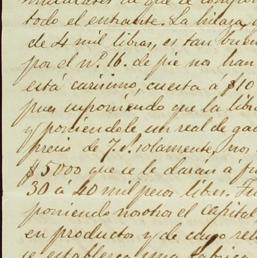 todo el entrante. La hilaza, q
de 4 mil libras, es tan buen
por el nº 16. de pie nos han
está carisimo, cuesta á $10
pues suponiendo que la libr
y poniendole un real de gas
precio de 7 d. solamente, nos
$5000 que se le darán á fu
30 á 40 mil pesos libres. Fu
poniendo nosotros el capital
en productos y de cuyo reto
se establezca una fabrica